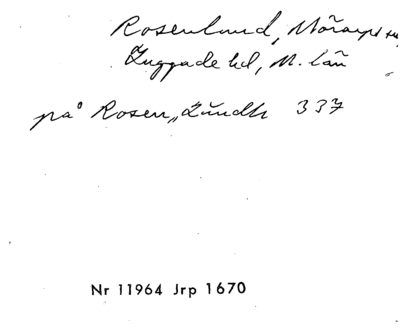 Rosenlund, Mörarps sn,
Luggude hd, M. län
på Rosen„Lŭndh 337
Nr 11964 Jrp 1670